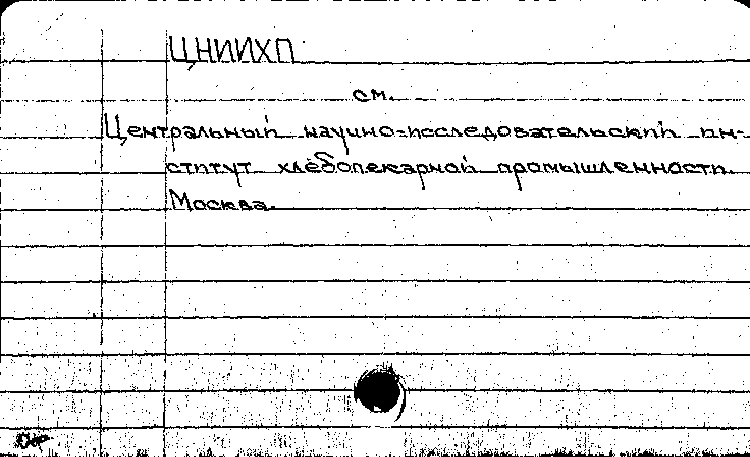 ЦНИИХП
см.
Центральный научно-исследовательский ин-
ститут хлебопекарной промышленности.
Москва.